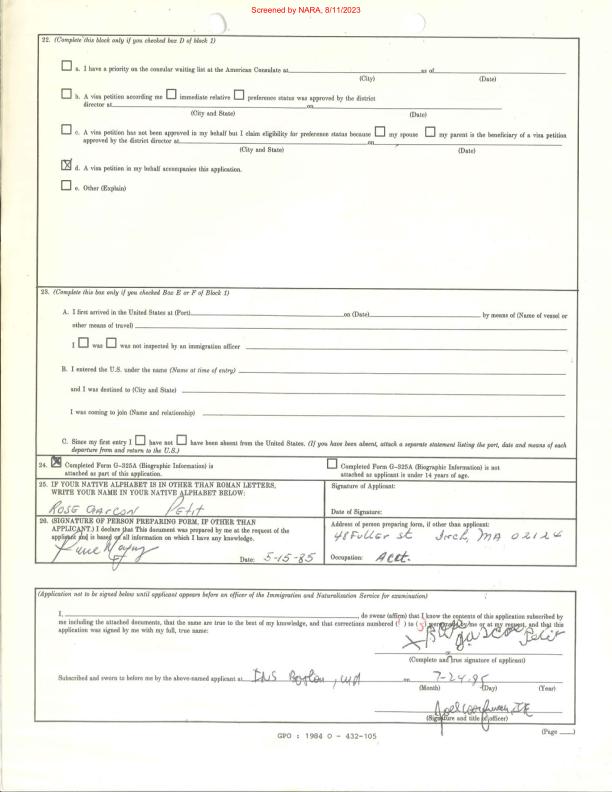 Screened by NARA, 8/11/2023
22. (Complete this block only if you checked box D of block 1)
a. I have a priority on the consular waiting list at the American Consulate at as of
(City) (Date)
b. A visa petition according me immediate relative preference status was approved by the district
director at on
(City and State) (Date)
c. A visa petition has not been approved in my behalf but I claim eligibility for preference status because my spouse my parent is the beneficiary of a visa petition
approved by the district director at on
(City and State) (Date)
d. A visa petition in my behalf accompanies this application.
e. Other (Explain)
23. (Complete this box only if you checked Box E or F of Block 1)
A. I first arrived in the United States at (Port) on (Date) by means of (Name of vessel or
other means of travel)
I was was not inspected by an immigration officer
B. I entered the U.S. under the name (Name at time of entry)
and I was destined to (City and State)
I was coming to join (Name and relationship)
C. Since my first entry I have not have been absent from the United States. (If you have been absent, attach a separate statement listing the port, date and means of each
departure from and return to the U.S.)
24. Completed Form G-325A (Biographic Information) is
attached as part of this application.
Completed Form G-325A (Biographic Information) is not
attached as applicant is under 14 years of age.
25. IF YOUR NATIVE ALPHABET IS IN OTHER THAN ROMAN LETTERS,
WRITE YOUR NAME IN YOUR NATIVE ALPHABET BELOW:
ROSE GARCON PETIT
Signature of Applicant:
Date of Signature:
26. (SIGNATURE OF PERSON PREPARING FORM, IF OTHER THAN
APPLICANT.) I declare that This document was prepared by me at the request of the
applicant and is based on all information on which I have any knowledge.
Date: 5-15-85
Address of person preparing form, if other than applicant:
48 Fuller st MA 02124
Occupation: Acct.
(Application not to be signed below until applicant appears before an officer of the Immigration and Naturalization Service for examination)
I, do swear (affirm) that I know the contents of this application subscribed by
me including the attached documents, that the same are true to the best of my knowledge, and that corrections numbered ( ) to ( ) were made by me or at my request, and that this
application was signed by me with my full, true name:
(Complete and true signature of applicant)
Subscribed and sworn to before me by the above-named applicant at INS Boston, MA on 7-24-85
(Month) (Day) (Year)
(Signature and title of officer)
GPO : 1984 O - 432-105
(Page )